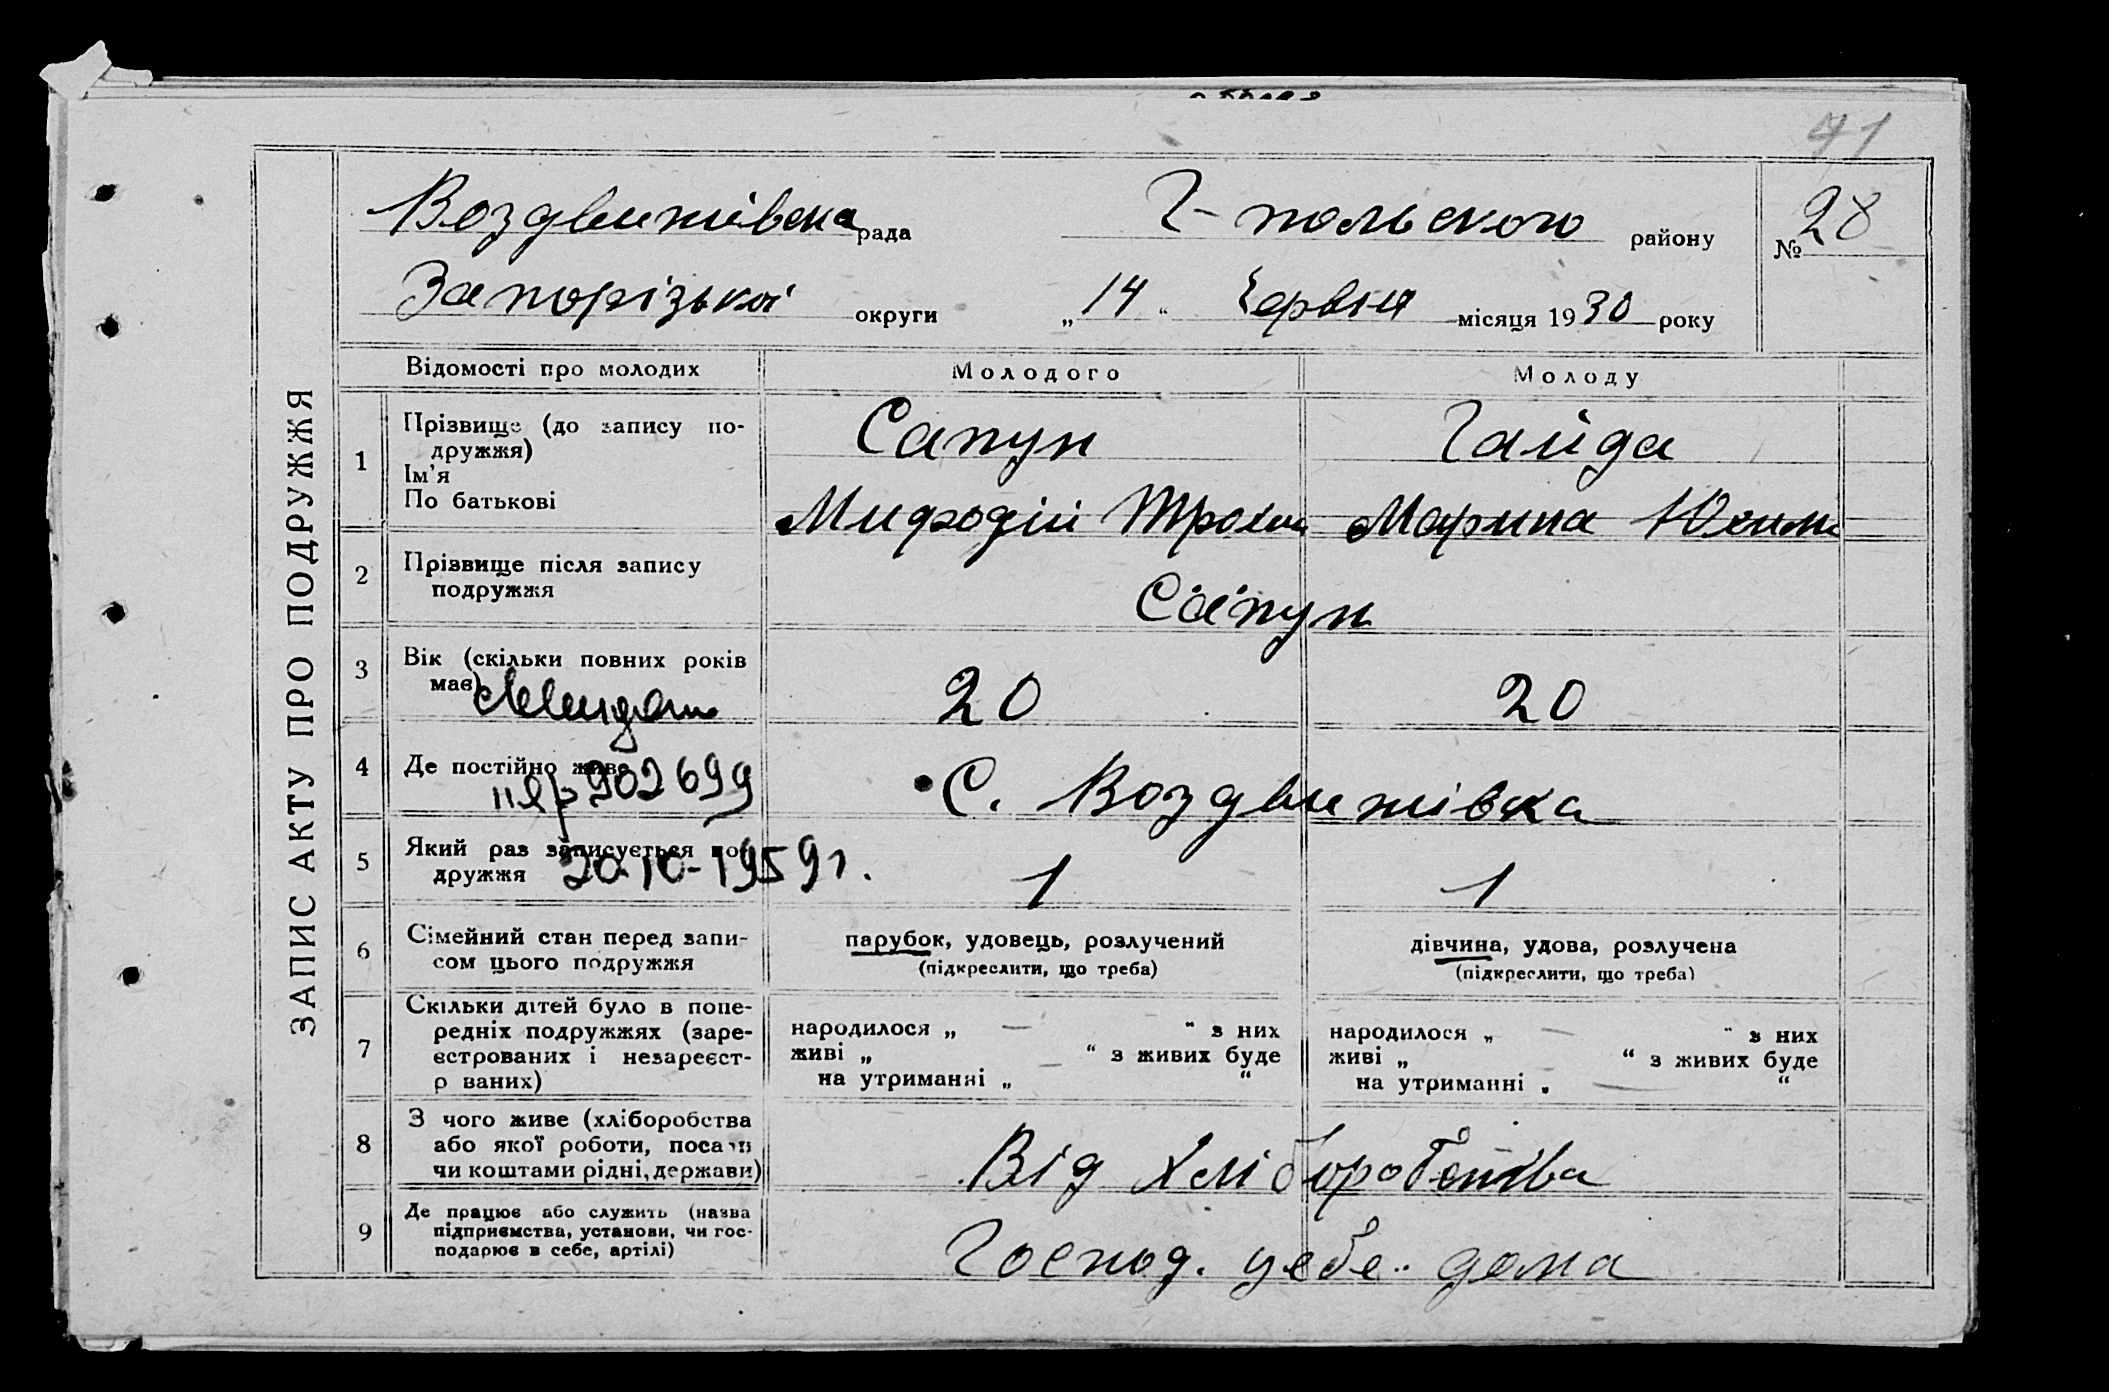 71
Воздвижівська рада Г-польського району № 28
Запорізької округи „ 14 “ Червня місяця 19 30 року
ЗАПИС АКТУ ПРО ПОДРУЖЖЯ
Відомості про молодих Молодого Молоду
1 Прізвище (до запису по-
дружжя)
Ім’я
По батькові
Сапун Гайда
Мифодій Трохим Марина Юхим
2 Прізвище після запису
подружжя
Сапун
3 Вік (скільки повних років
має)
20 20
4 Де постійно живе
902699
С. Воздвижівка
5 Який раз записується по-
дружжя
20-IV-1959 г.
1 1
6 Сімейний стан перед запи-
сом цього подружжя
парубок, удовець, розлучений
(підкреслити, що треба)
дівчина, удова, розлучена
(підкреслити, що треба)
7 Скільки дітей було в попе-
редніх подружжях (заре-
єстрованих і незареєст-
р ваних)
народилося „ — “ з них
живі „ — “ з живих буде
на утриманні „ — “
народилося „ — “ з них
живі „ — “ з живих буде
на утриманні „ — “
8 З чого живе (хліборобства
або якої роботи, посади
чи коштами рідні, держави)
Від хліборобства
9 Де працює або служить (назва
підприємства, установи, чи гос-
подарює в себе, артілі)
Господ. у себе дома